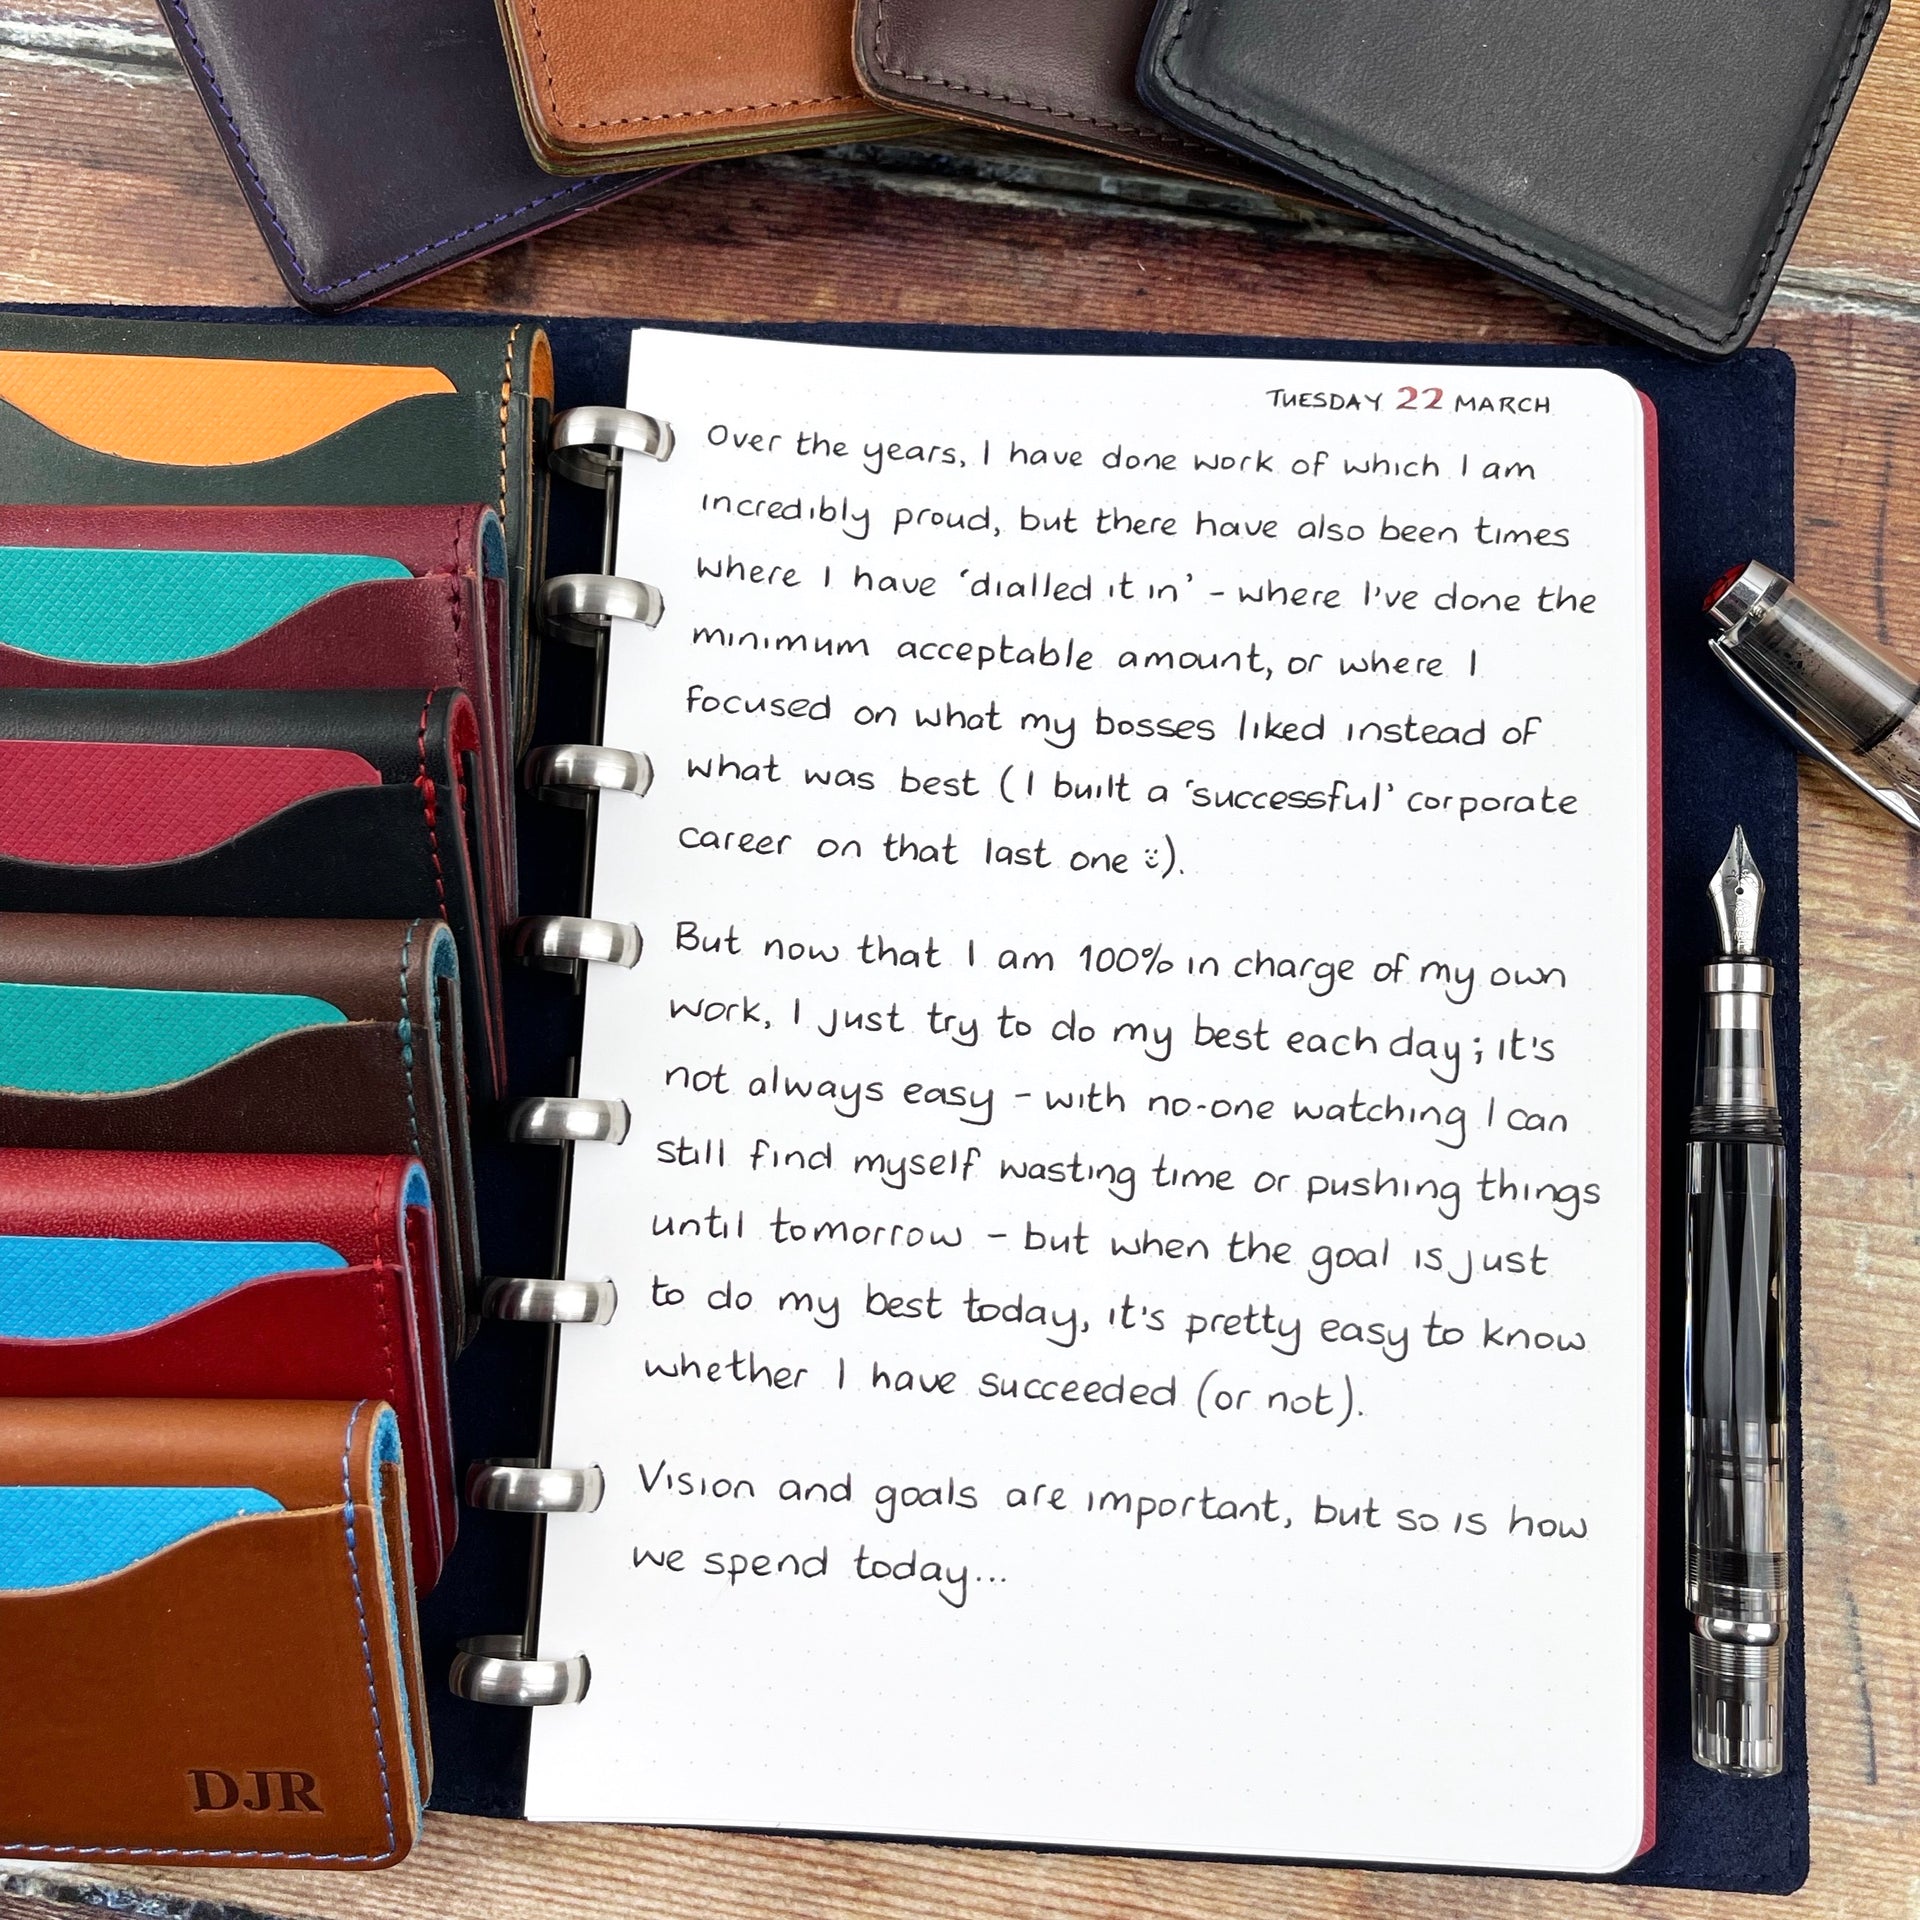 TUESDAY 22 MARCH
Over the years, I have done work of which I am
incredibly proud, but there have also been times
where I have 'dialled it in' - where I've done the
minimum acceptable amount, or where I
focused on what my bosses liked instead of
what was best (I built a 'successful' corporate
career on that last one :)).
But now that I am 100% in charge of my own
work, I just try to do my best each day; it's
not always easy - with no-one watching I can
still find myself wasting time or pushing things
until tomorrow - but when the goal is just
to do my best today, it's pretty easy to know
whether I have succeeded (or not).
Vision and goals are important, but so is how
we spend today...
DJR